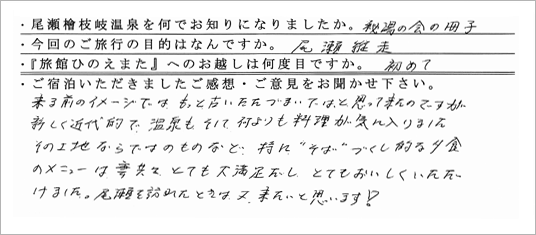 ・尾瀬檜枝岐温泉を何でお知りになりましたか。秘湯の会の冊子
・今回のご旅行の目的はなんですか。 尾瀬 縦走
・『旅館ひのえまた』へのお越しは何度目ですか。 初めて
・ご宿泊いただきましたご感想・ご意見をお聞かせ下さい。
来る前のイメージではもっと古いたたずまいではと思って来たのですが
新しく近代的で、温泉もそして何よりも料理が気に入りました
その土地ならではのものなど、特に"そば"づくし的な夕食
のメニューは妻共々とても大満足だし、とてもおいしくいただ
けました。尾瀬を訪れたときは又来たいと思います!